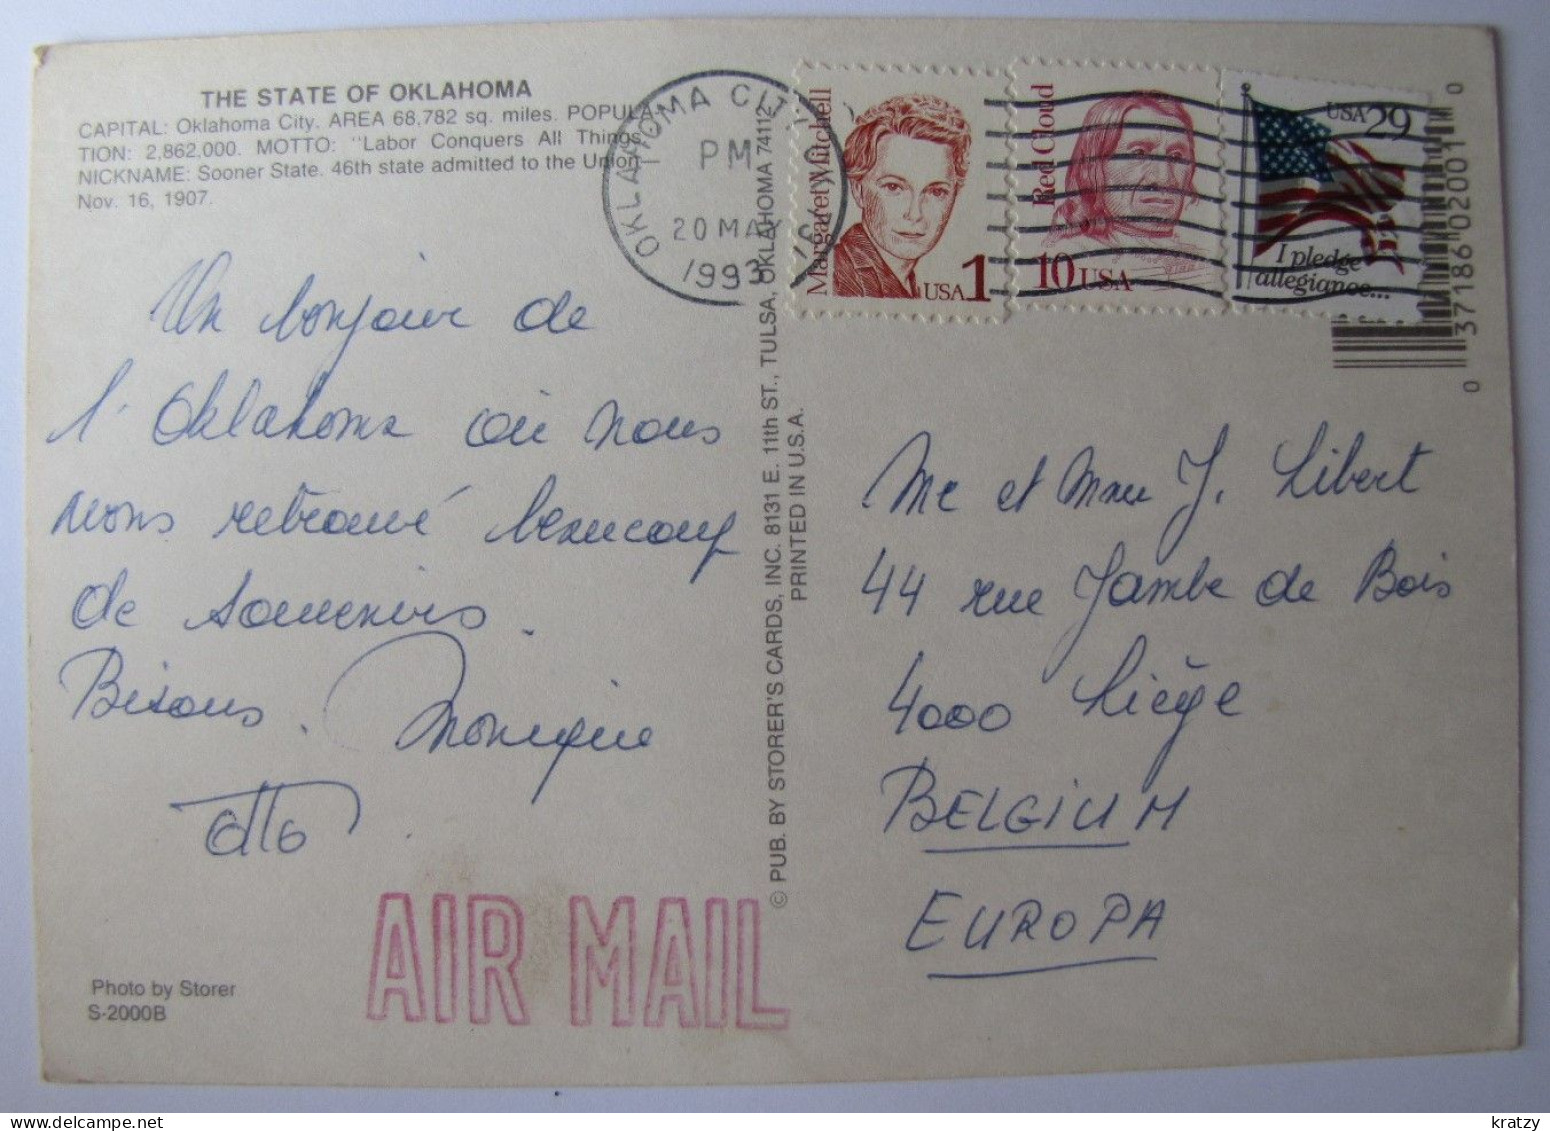 THE STATE OF OKLAHOMA
CAPITAL: Oklahoma City. AREA 68,782 sq. miles. POPULA-
TION: 2,862,000. MOTTO: "Labor Conquers All Things.
NICKNAME: Sooner State. 46th state admitted to the Union
Nov. 16, 1907.
OKLAHOMA CITY
PM
20 MAY
1993
Margaret Mitchell
USA 1
Red Cloud
10 USA
USA 29
I pledge
allegiance...
0
37186 02001
0
Un bonjour de
l'Oklahoma où nous
avons retrouvé beaucoup
de souvenirs.
Bisous. Monique
Otto
© PUB. BY STORER'S CARDS, INC. 8131 E. 11th ST., TULSA, OKLAHOMA 74112
PRINTED IN U.S.A.
Mr et Mme J. Libert
44 rue Jambe de Bois
4000 Liège
BELGIUM
EUROPA
AIR MAIL
Photo by Storer
S-2000B
kratzy